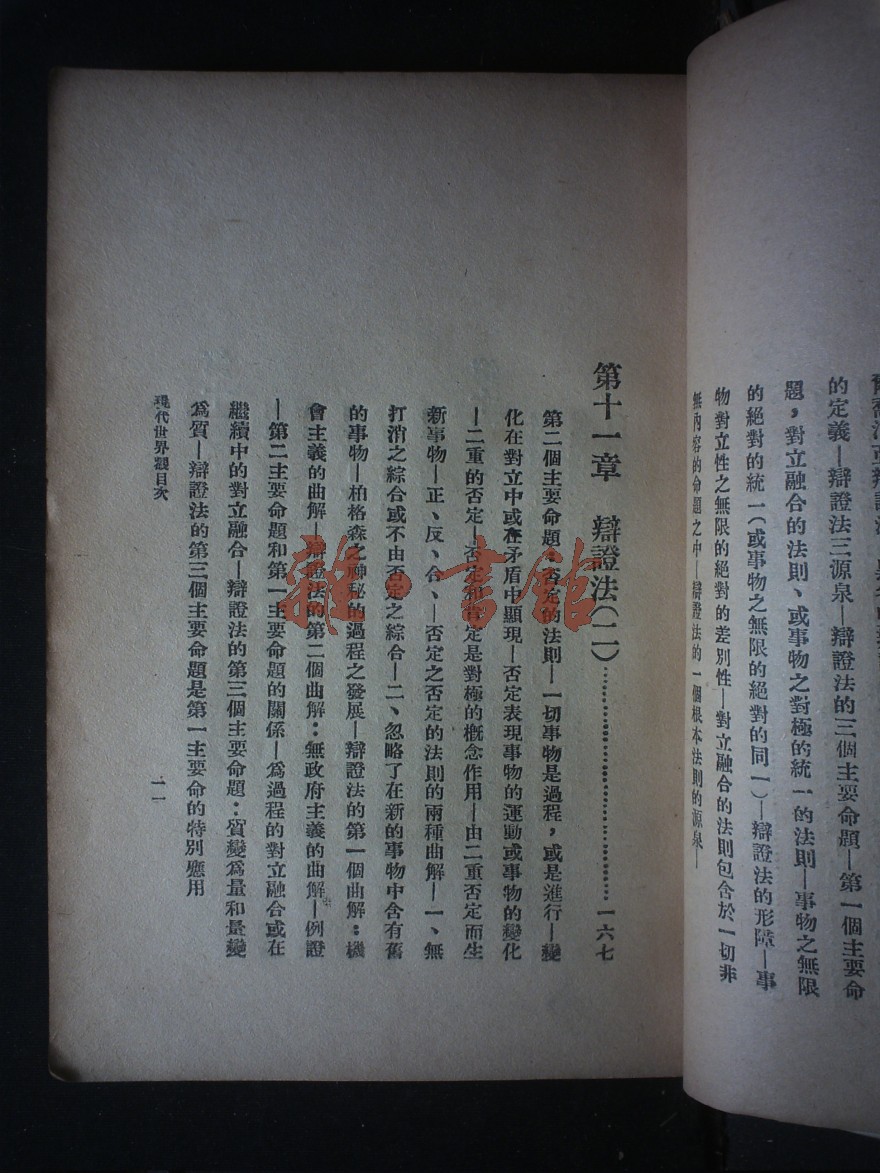 的定義—辯證法三源泉—辯證法的三個主要命題—第一個主要命
題，對立融合的法則、或事物之對極的統一的法則—事物之無限
的絕對的統一（或事物之無限的絕對的同一）—辯證法的形障—事
物對立性之無限的絕對的差別性—對立融合的法則包含於一切非
無內容的命題之中—辯證法的一個根本法則的源泉—
第十一章　辯證法（二）…………………………一六七
第二個主要命題：否定的法則—一切事物是過程，或是進行—變
化在對立中或在矛盾中顯現—否定表現事物的運動或事物的變化
—二重的否定—否定和肯定是對極的概念作用—由二重否定而生
新事物—正、反、合、—否定之否定的法則的兩種曲解—一、無
打消之綜合或不由否定之綜合—二、忽略了在新的事物中含有舊
的事物—柏格森之神秘的過程之發展—辯證法的第一個曲解：機
會主義的曲解—辯證法的第二個曲解：無政府主義的曲解—例證
—第二主要命題和第一主要命題的關係—為過程的對立融合或在
繼續中的對立融合—辯證法的第三個主要命題：質變為量和量變
為質—辯證法的第三個主要命題是第一主要命的特別應用
現代世界觀目次
一一
雜·書館